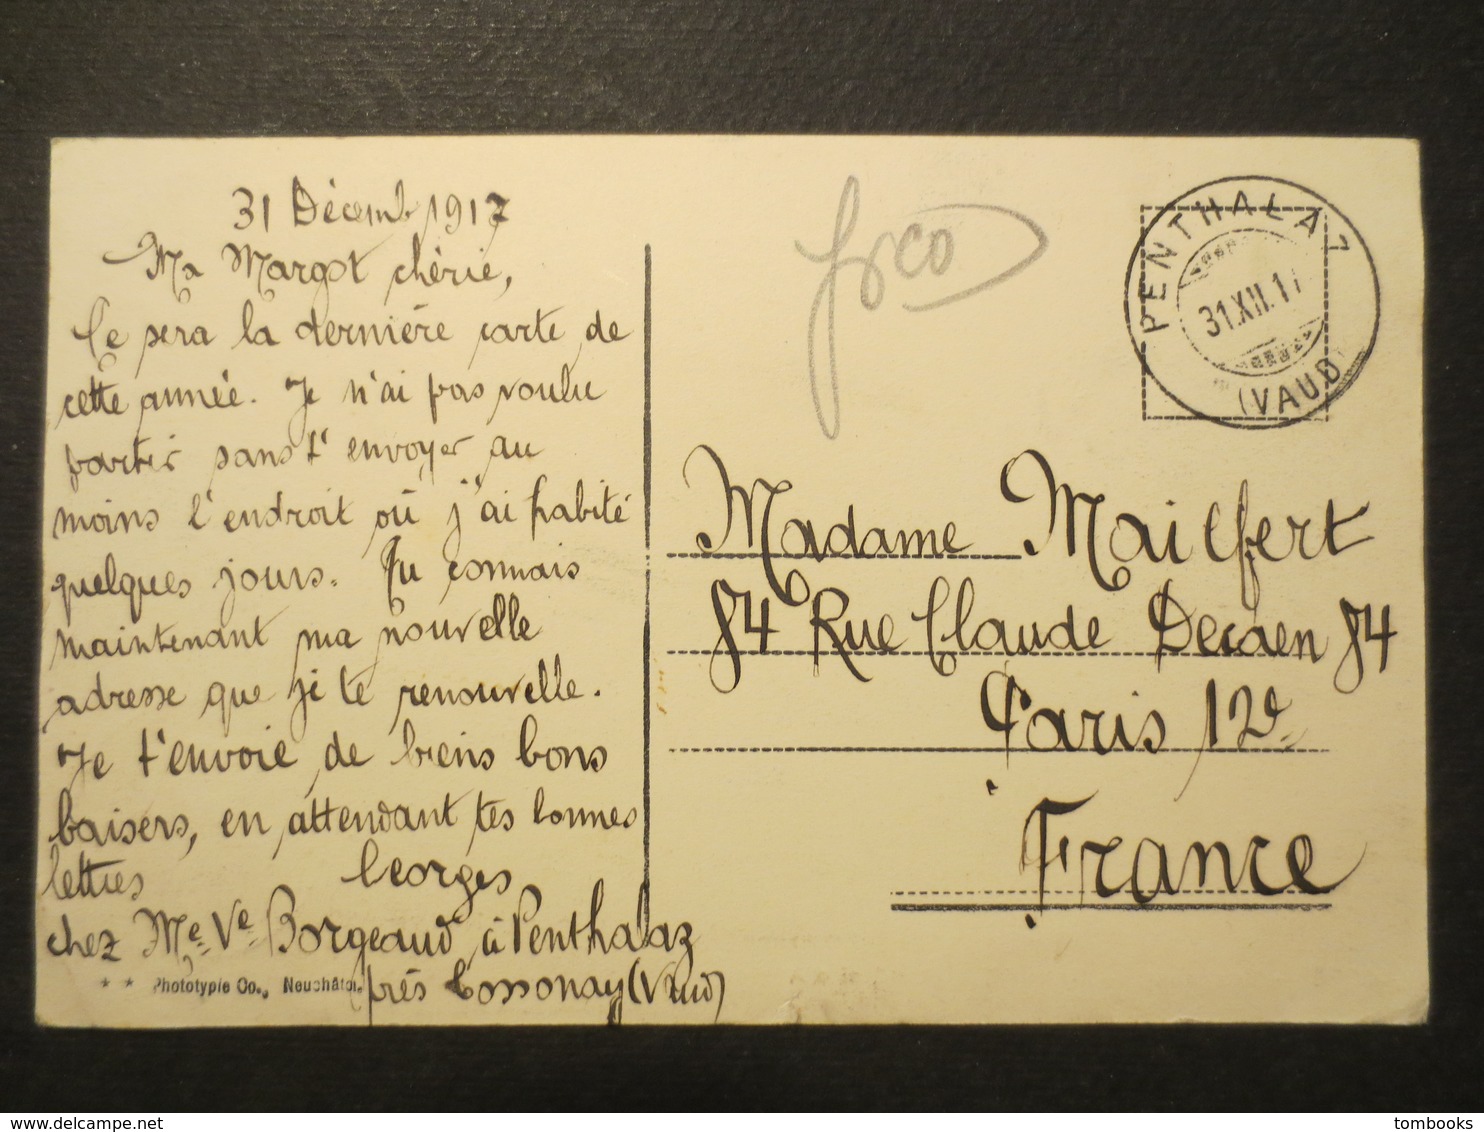 31 Décembre 1917
Ma Margot chérie,
Ce sera la dernière carte de
cette année. Je n'ai pas voulu
partir sans t'envoyer au
moins l'endroit où j'ai habité
quelques jours. Tu connais
maintenant ma nouvelle
adresse que je te renouvelle.
Je t'envoie de biens bons
baisers, en attendant tes bonnes
lettres
Georges
chez Me Ve Borgeaud à Penthalaz
près Cossonay (Vaud)
* * Phototypie Co., Neuchâtel.
PENTHALAZ
31.XII.17
(VAUD)
Madame Mailfert
84 Rue Claude Decaen 84
Paris 12e
France
tombooks